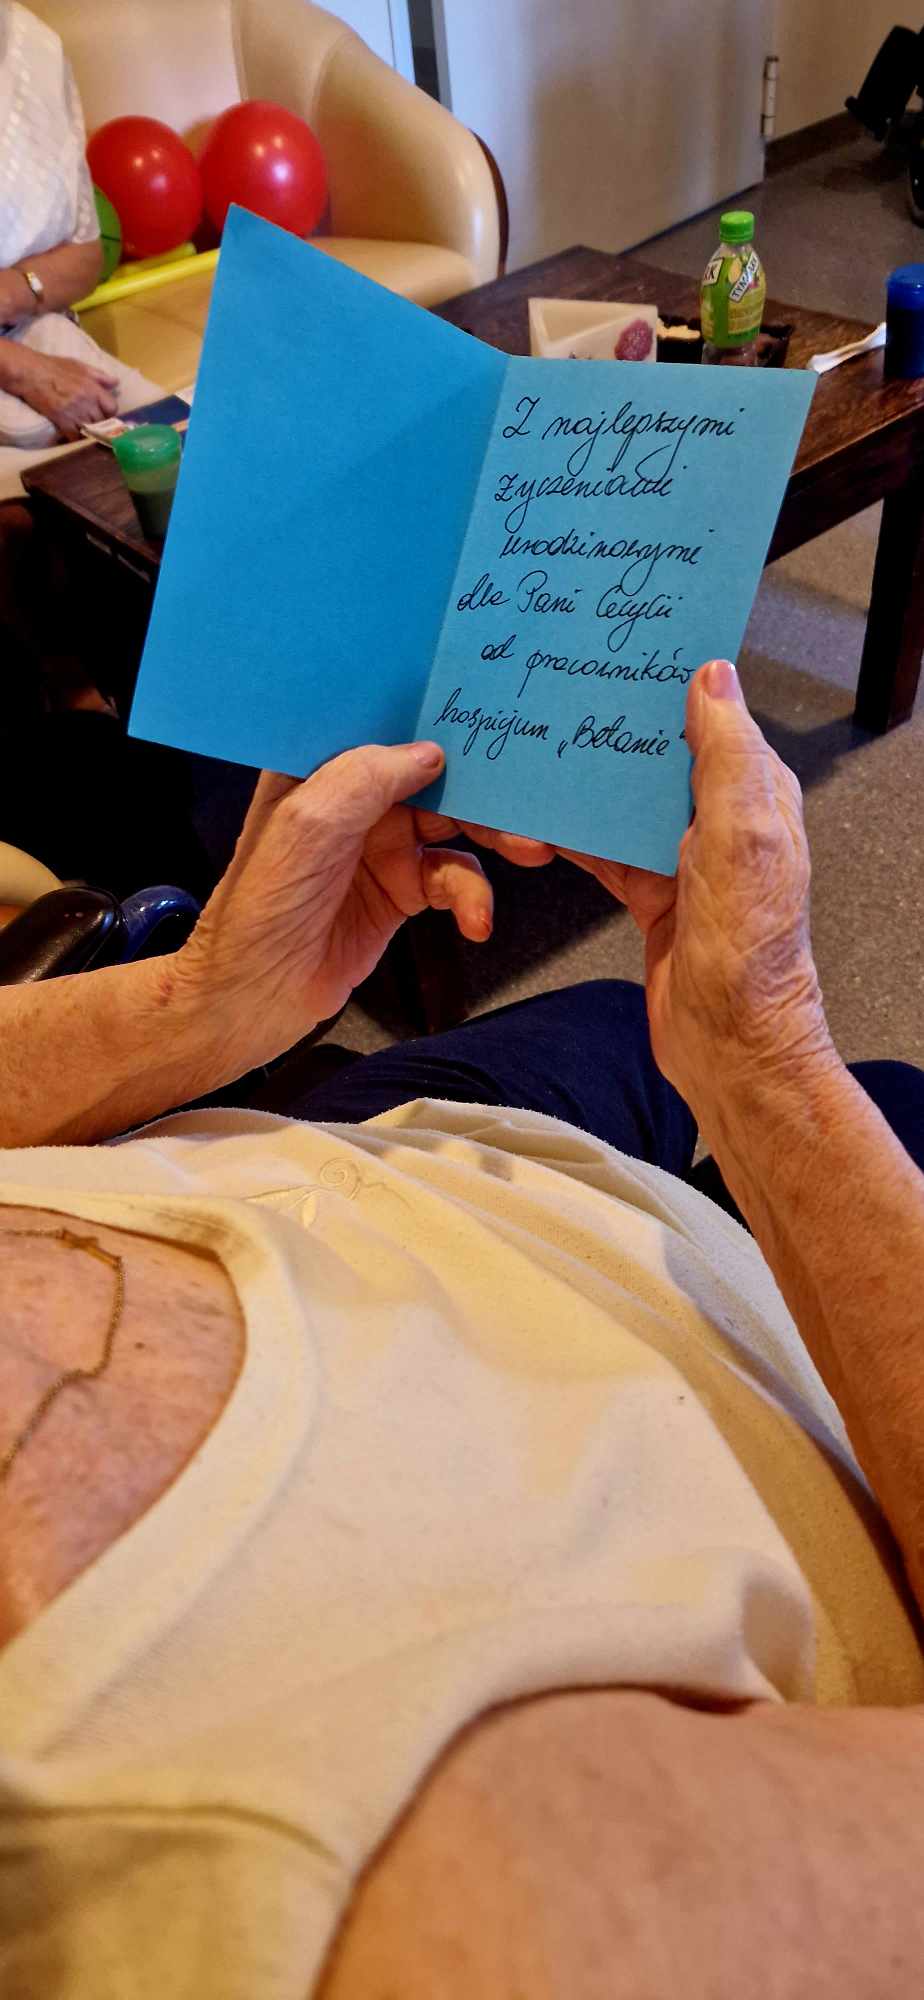 Z najlepszymi
życzeniami
urodzinowymi
dla Pani Cecylii
od pracowników
hospicjum „Betanie”
TYMBARK